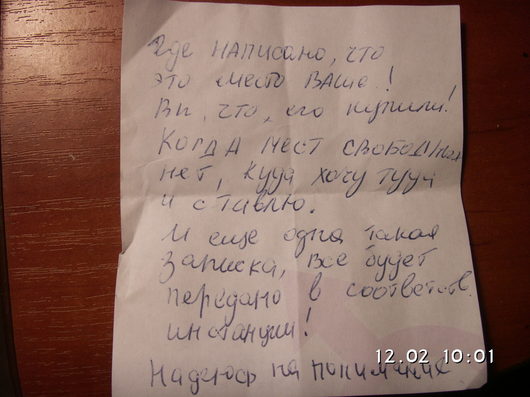 Где написано, что
это место ВАШЕ!
Вы, что, его купили!
Когда мест свободных
нет, куда хочу туда
и ставлю.
И еще одна такая
записка, все будет
передано в соответств.
инстанции!
Надеюсь на понимание
12.02 10:01